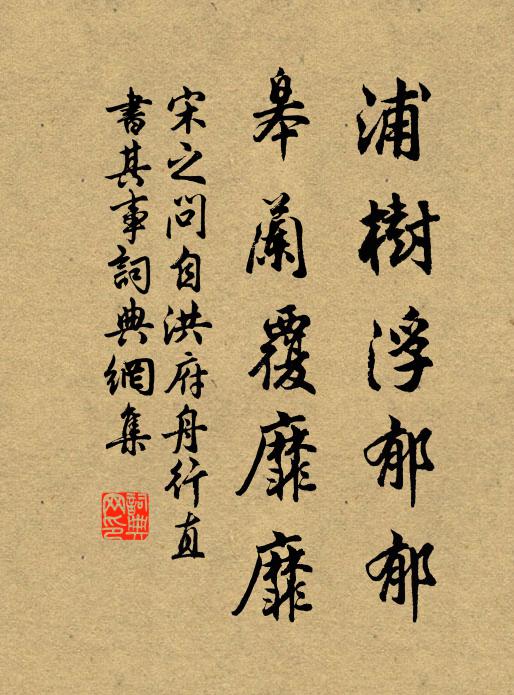 浦樹浮郁郁
皋蘭覆靡靡
宋之問自洪府舟行直
書其事詞典網集
詞典網印